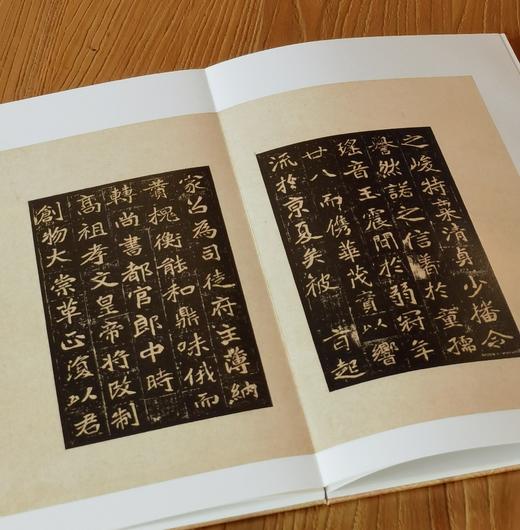 之峻特稟清貞少播令
譽然諾之信著於童孺
瑤音玉震聞於弱冠年
廿八而儁華茂實以響
流於京夏矣被 旨起
家公為司徒府主薄納
贊槐衡能和鼎味俄而
轉尚書都官郎中時
高祖孝文皇帝將改制
創物大崇革正復以君